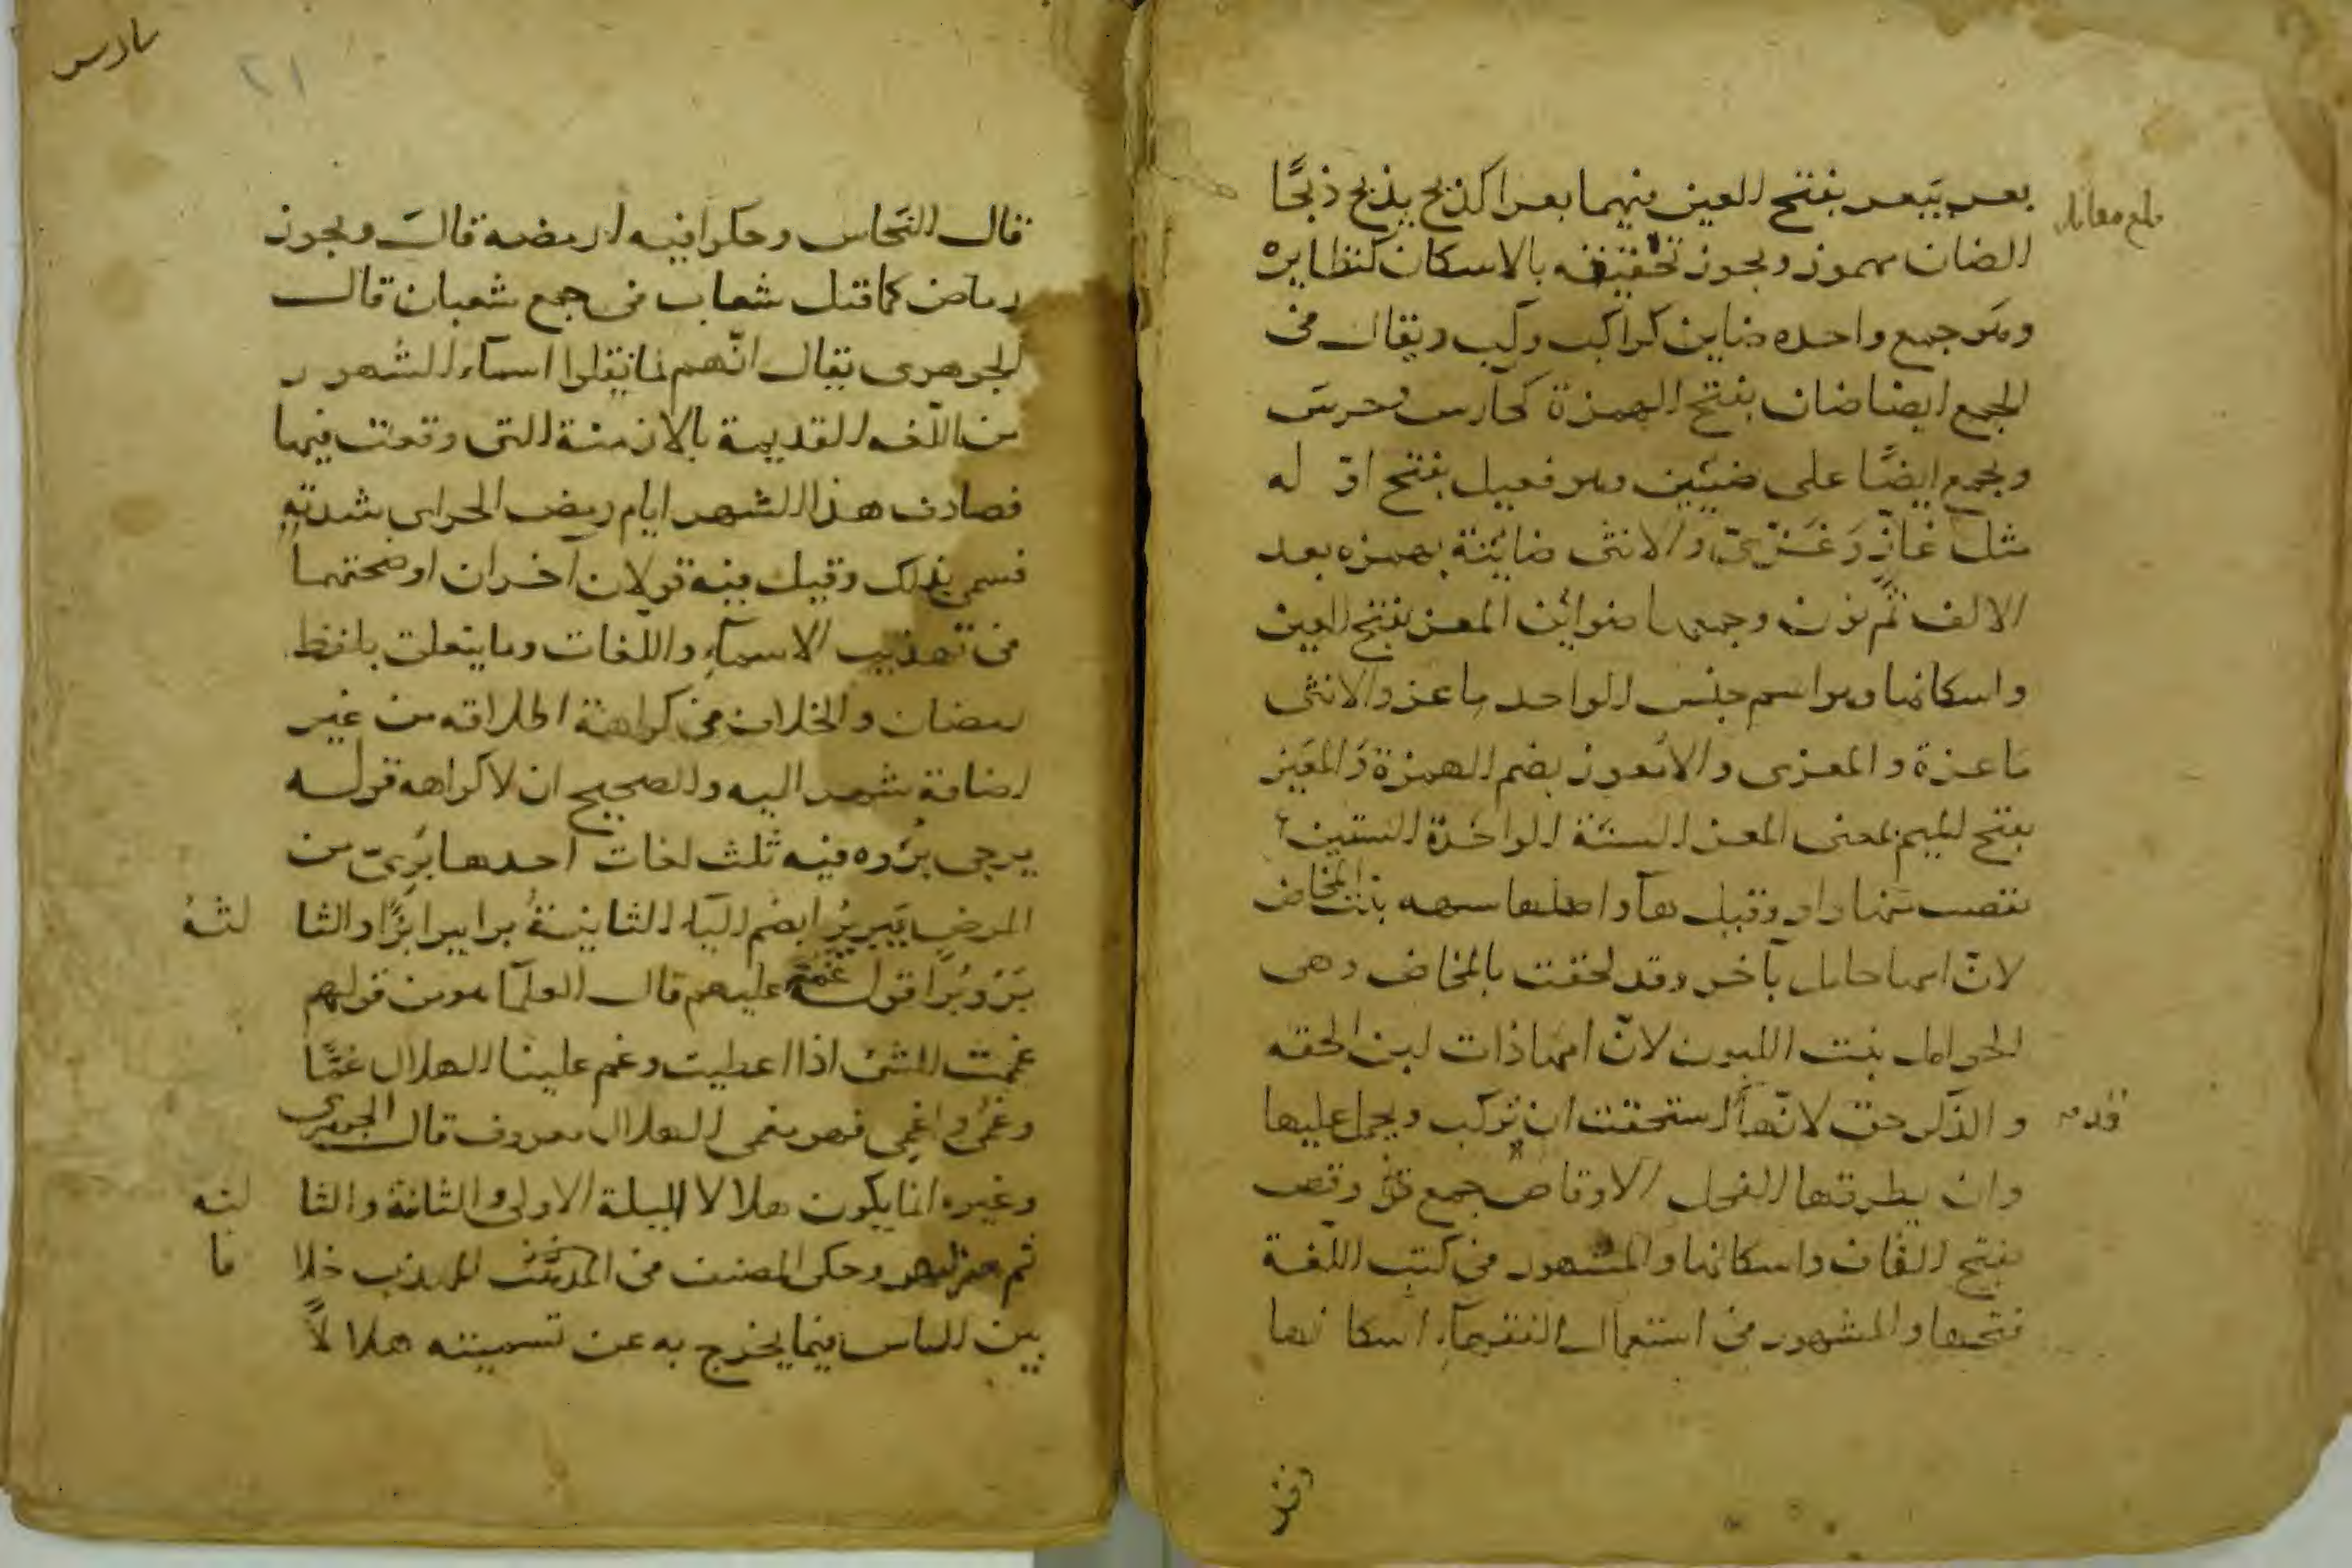 بلغ مقابلة
يعر ييعر بفتح العين فيهما يعرا كذبح يذبح ذبحًا
الضان مهموز ويجوز تخفيفه بالاسكان كنظايره
وهو جمع واحده ضاين كراكب وركب ويقال في
الجمع ايضا ضان بفتح الهمزة كحارس وحرس
ويجمع ايضًا على ضئين وهو فعيل بفتح اوّ له
مثل غازٍ وغزىّ والانثى ضاينة بهمزه بعد
الالف ثم نون وجمعها ضوائن المعز بفتح العين
واسكانها وهو اسم جنس الواحد ماعز والانثى
ماعزة والمعزى والامعوز بضم الهمزة والمعيز
بفتح الميم بمعنى المعز السنة الواحدة السنين
نقصت منها واو وقيل هآ واصلها سنهه بنت المخاض
لانّ امها حامل بآخر وقد لحقت بالمخاض وهي
الحوامل بنت اللبون لانّ امها ذات لبن الحقه
والذكر حق لانّها استحقت ان تركب ويحمل عليها
وان يطرقها الفحل الاوقاص جمع وقص
بفتح القاف واسكانها والمشهور في كتب اللّغة
فتحها والمشهور في استعمال الفقهآء اسكانها
سادس
٢١
قال النحاس وحكوا فيه ارمضه قال ويجوز
رماض كما قيل شعاب في جمع شعبان قال
الجوهرى يقال انّهم لما نقلوا اسمآء الشهور
من اللّغه القديمة بالازمنة التي وقعت فيها
فصادف هذا الشهر ايام رمض الحر اي شدته
فسمي بذلك وقيل فيه قولان آخران اوضحتهما
في تهذيب الاسمآء واللغات وما يتعلق بلفظ
رمضان والخلاف في كراهة اطلاقه من غير
اضافة شهر اليه والصحيح ان لا كراهه قوله
يرجى برؤه فيه ثلث لغات احدها برئ من
المرض يبرؤ بضم اليآء الثانية برا يبرا برًا والثا لثة
برؤ برًا قوله غمّ عليهم قال العلمآ هو من قولهم
غممت الشئ اذا اعطيت وغم علينا الهلال غمًّا
وغمى واغمي فهو مغمى الهلال معروف قال الجوهرى
وغيره انما يكون هلالا الليلة الاولى والثانية والثا لثه
ثم هو قمر وحكى المصنف في المهذب خلا فا
بين الناس فيما يخرج به عن تسميته هلا لاً